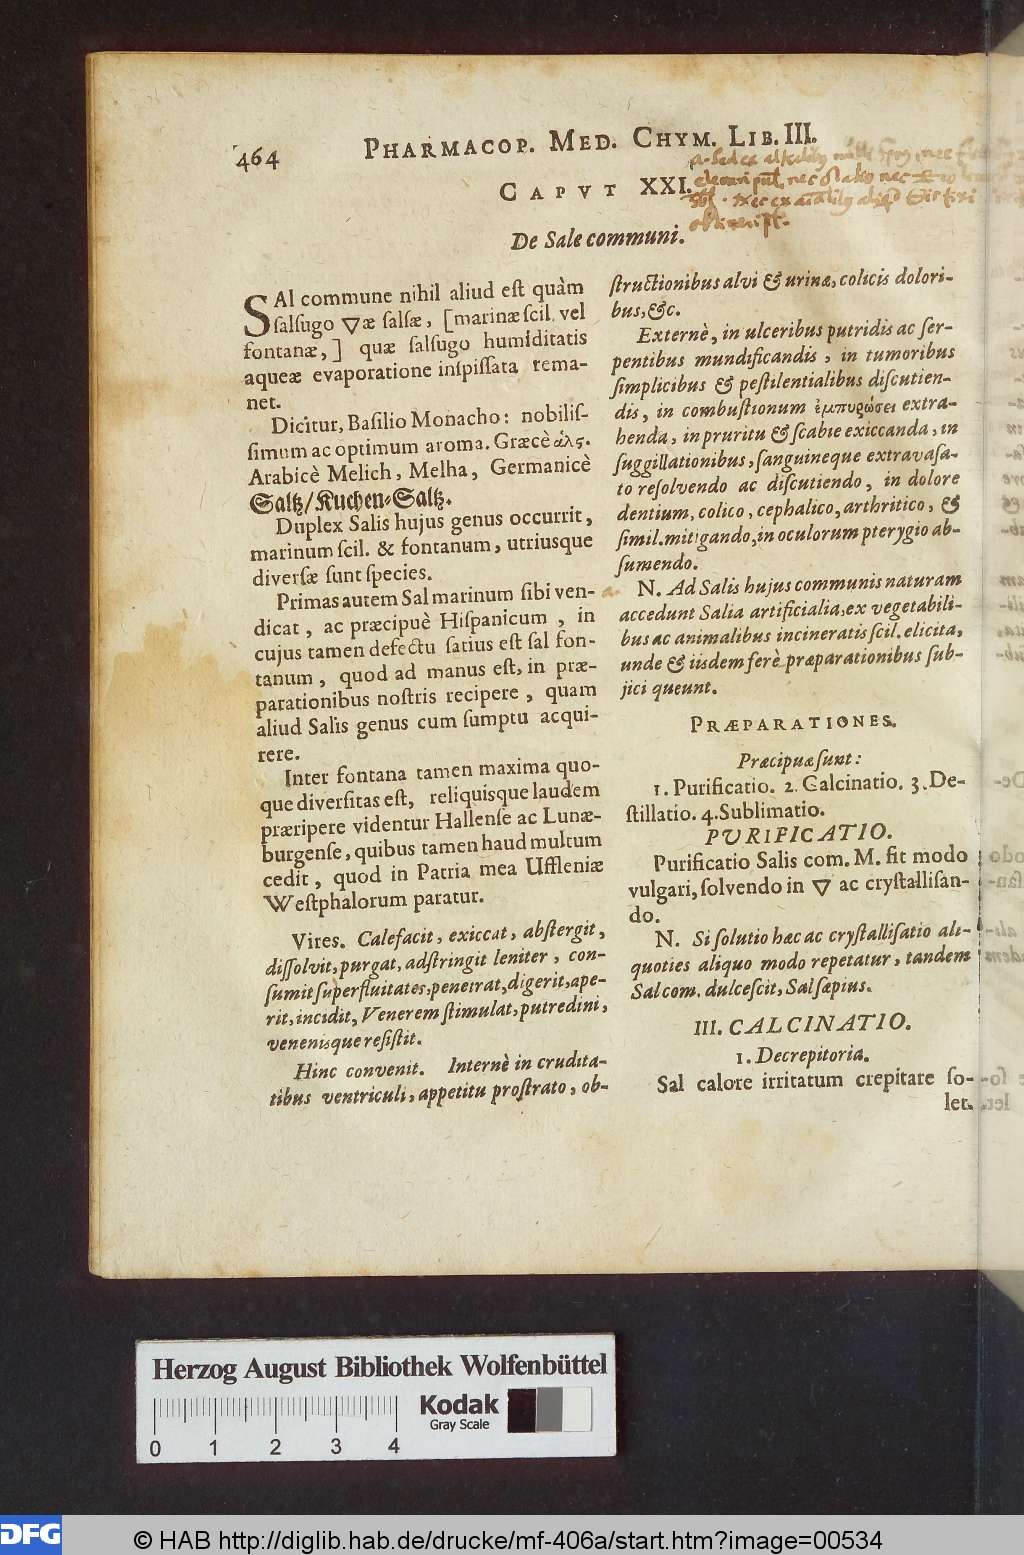 464
PHARMACOP. MED. CHYM. LIB. III.
CAPVT XXI.
De Sale communi.
SAl commune nihil aliud eſt quàm
ſalſugo 🜄æ ſalſæ, [marinæ ſcil. vel
fontanæ,] quæ ſalſugo humiditatis
aqueæ evaporatione inſpiſſata rema-
net.
Dicitur, Baſilio Monacho: nobiliſ-
ſimum ac optimum aroma. Græcè ἁλς.
Arabicè Melich, Melha, Germanicè
Saltz/Kuchen-Saltz.
Duplex Salis hujus genus occurrit,
marinum ſcil. & fontanum, utriusque
diverſæ ſunt ſpecies.
Primas autem Sal marinum ſibi ven-
dicat, ac præcipuè Hiſpanicum, in
cujus tamen defectu ſatius eſt ſal fon-
tanum, quod ad manus eſt, in præ-
parationibus noſtris recipere, quam
aliud Salis genus cum ſumptu acqui-
rere.
Inter fontana tamen maxima quo-
que diverſitas eſt, reliquisque laudem
præripere videntur Hallenſe ac Lunæ-
burgenſe, quibus tamen haud multum
cedit, quod in Patria mea Uffleniæ
Weſtphalorum paratur.
Vires. Calefacit, exiccat, abſtergit,
diſſolvit, purgat, adſtringit leniter, con-
ſumit ſuperfluitates, penetrat, digerit, ape-
rit, incidit, Venerem ſtimulat, putredini,
venenisque reſiſtit.
Hinc convenit. Internè in crudita-
tibus ventriculi, appetitu proſtrato, ob-
ſtructionibus alvi & urinæ, colicis dolori-
bus, &c.
Externè, in ulceribus putridis ac ſer-
pentibus mundificandis, in tumoribus
ſimplicibus & peſtilentialibus diſcutien-
dis, in combuſtionum ἐμπυρώσει extra-
henda, in pruritu & ſcabie exiccanda, in
ſuggillationibus, ſanguineque extravaſa-
to reſolvendo ac diſcutiendo, in dolore
dentium, colico, cephalico, arthritico, &
ſimil. mitigando, in oculorum pterygio ab-
ſumendo.
N. Ad Salis hujus communis naturam
accedunt Salia artificialia, ex vegetabili-
bus ac animalibus incineratis ſcil. elicita,
unde & iisdem ferè præparationibus ſub-
jici queunt.
PRÆPARATIONES.
Præcipuæ ſunt:
1. Purificatio. 2. Calcinatio. 3. De-
ſtillatio. 4. Sublimatio.
PURIFICATIO.
Purificatio Salis com. M. fit modo
vulgari, ſolvendo in 🜄 ac cryſtalliſan-
do.
N. Si ſolutio hæc ac cryſtalliſatio ali-
quoties aliquo modo repetatur, tandem
Sal com. dulceſcit, Sal ſæpius.
III. CALCINATIO.
1. Decrepitoria.
Sal calore irritatum crepitare ſo-
let.
Herzog August Bibliothek Wolfenbüttel
Kodak
Gray Scale
0 1 2 3 4
DFG
© HAB http://diglib.hab.de/drucke/mf-406a/start.htm?image=00534